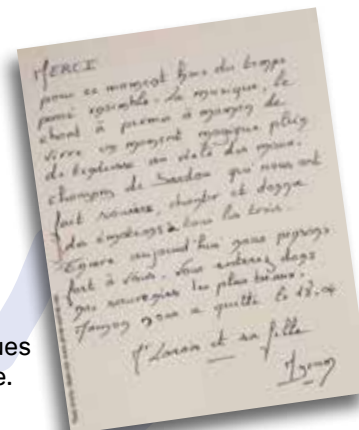 MERCI
pour ce moment hors du temps
passé ensemble. La musique, le
chant à permis à maman de
vivre un moment magique plein
de tendresse au delà des maux.
chansons de Sardou qui nous ont
fait sourire, chanter et donné
des émotions à tous les trois.
Encore aujourd'hui nous pensons
fort à vous. Vous resterez dans
nos souvenirs les plus beaux.
Maman nous a quitté le 18.04
et sa fille
ues
e.